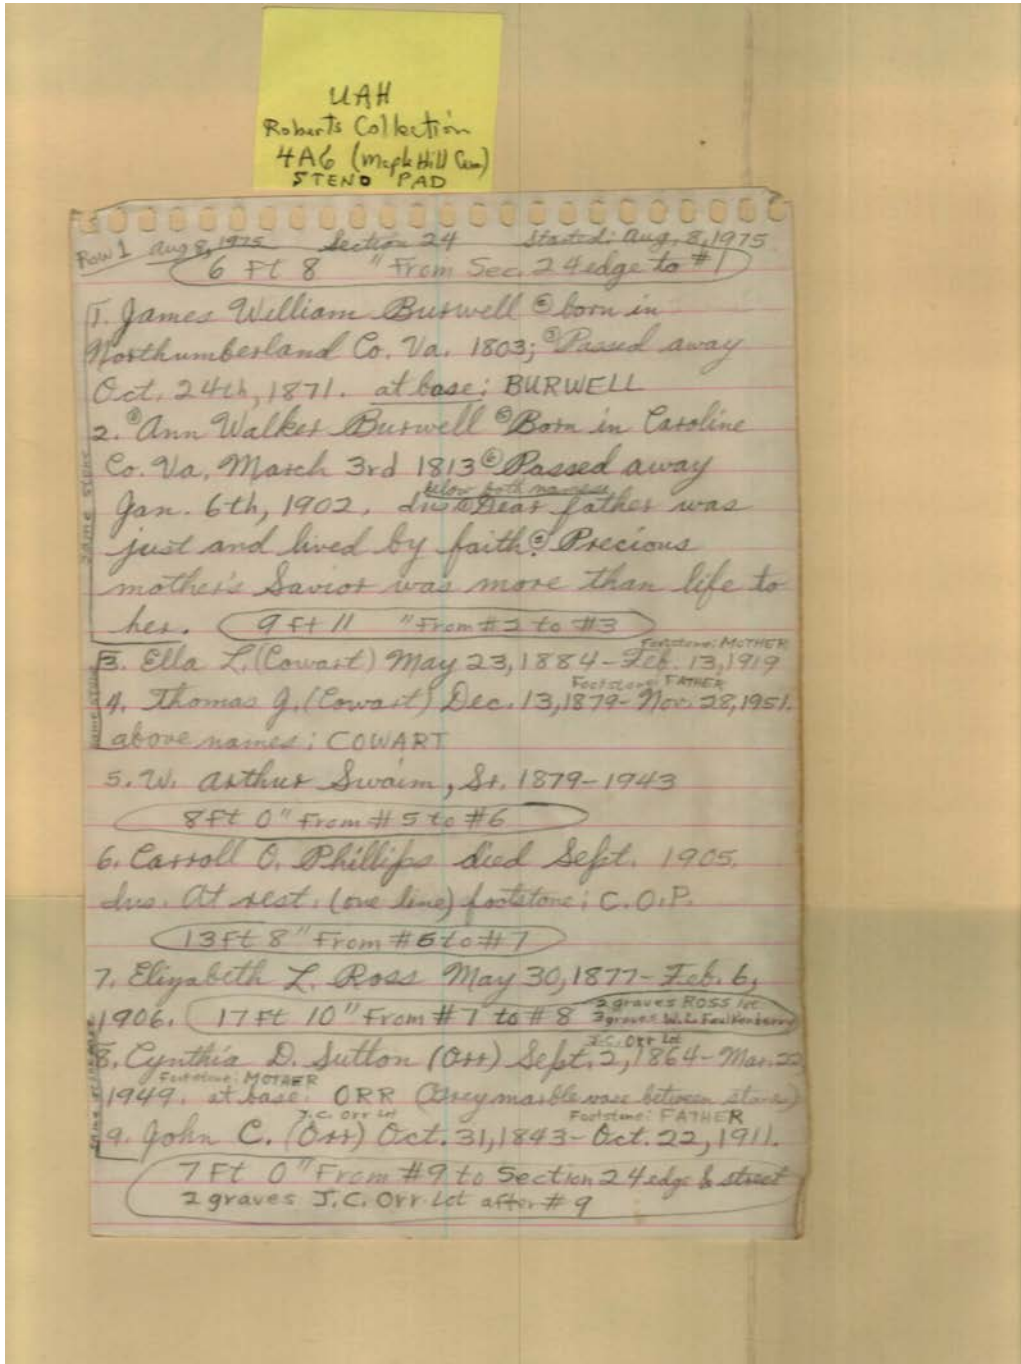 UAH
Roberts Collection
4A6 (Maple Hill Cem)
STENO PAD
Row 1 Aug 8, 1975 Section 24 Started: Aug. 8, 1975
6 Ft 8 " From Sec. 24 edge to #1
1. James William Burwell born in
Northumberland Co. Va. 1803; Passed away
Oct. 24th, 1871. at base: BURWELL
2. Ann Walker Burwell Born in Caroline
Co. Va. March 3rd 1813 Passed away
below both names
Jan. 6th, 1902. Dear father was
just and lived by faith. Precious
mother's Savior was more than life to
her. 9 Ft 11 " From #2 to #3
same stone
Footstone: MOTHER
3. Ella L. (Cowart) May 23, 1884 - Feb. 13, 1919
Footstone: FATHER
4. Thomas J. (Cowart) Dec. 13, 1879 - Nov. 28, 1951.
above names: COWART
same stone
5. W. Arthur Swaim, Sr. 1879-1943
8 Ft 0" From #5 to #6
6. Carroll O. Phillips died Sept. 1905.
At rest. (one line) footstone: C.O.P.
13 Ft 8" From #6 to #7
7. Elizabeth L. Ross May 30, 1877 - Feb. 6,
1906. 17 Ft 10" From #7 to #8 2 graves ROSS lot
3 graves W.L. Faulkenberry
J.C. Orr Lot
8. Cynthia D. Sutton (Orr) Sept. 2, 1864 - Mar. 22
Footstone: MOTHER
1949. at base: ORR (Grey marble vase between stones)
J.C. Orr Lot Footstone: FATHER
9. John C. (Orr) Oct. 31, 1843 - Oct. 22, 1911.
7 Ft 0" From #9 to Section 24 edge & street
2 graves J.C. Orr Lot after #9